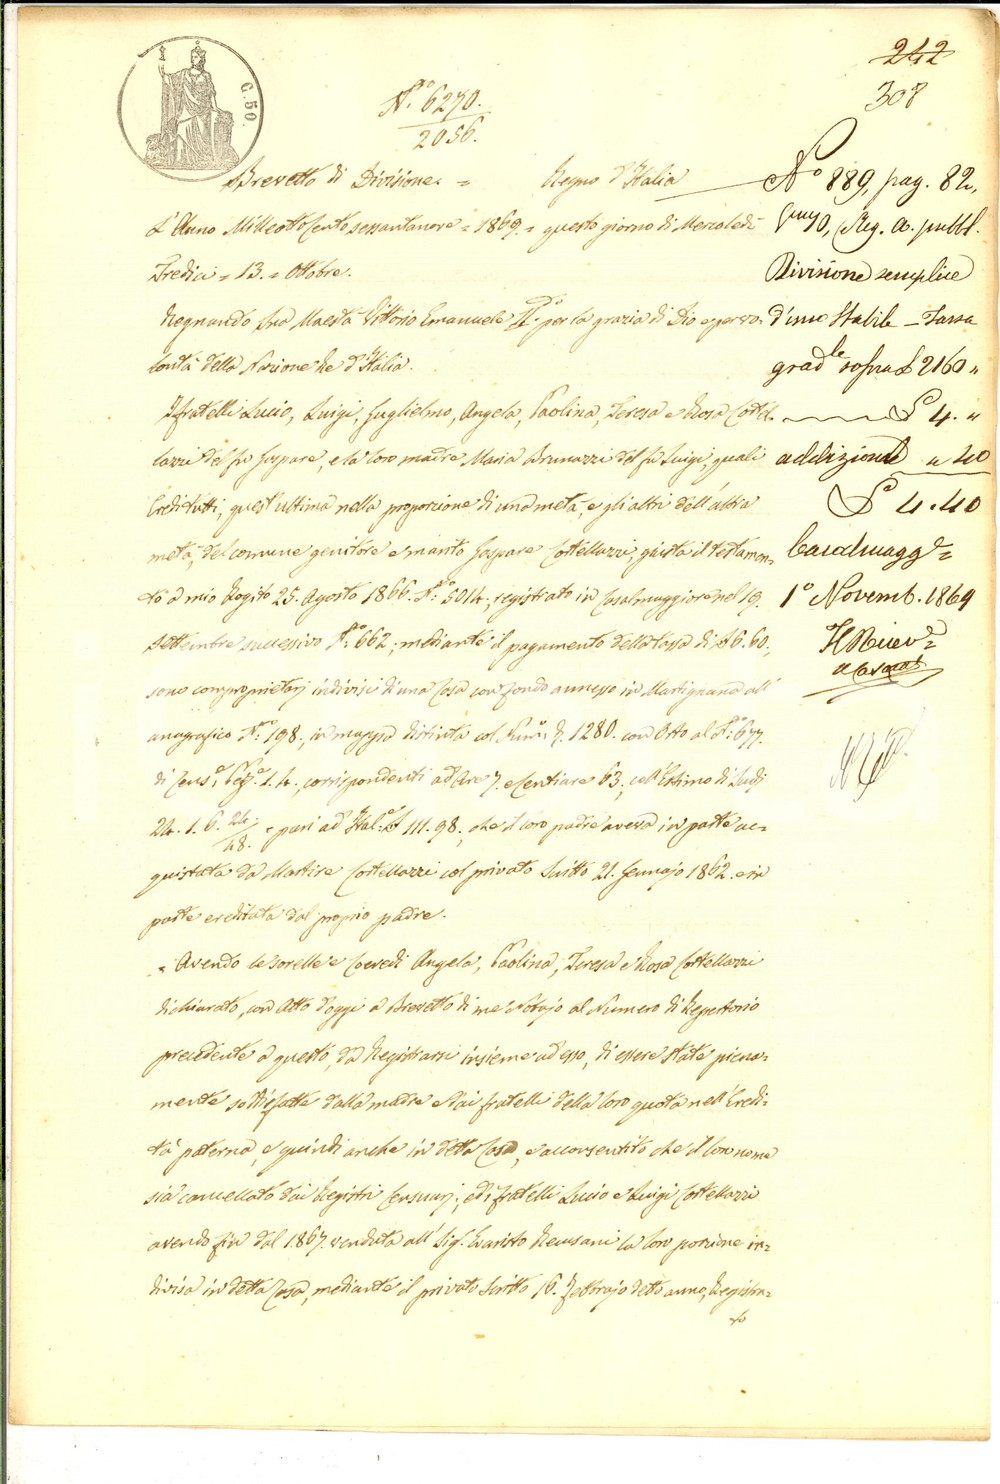 C. 50.
242
308
N.º 6270.
2056.
Brevetto di Divisione. = Regno d'Italia
L'Anno Mille otto cento sessantanove = 1869. = questo giorno di Mercoledì
Tredici = 13. = Ottobre.
Regnando Sua Maestà Vittorio Emanuele IIº per la grazia di Dio e per vo-
lontà della Nazione Re d'Italia.
I fratelli Lucio, Luigi, Guglielmo, Angela, Paolina, Teresa e Rosa Cottel-
lazzi del fu Gaspare, e la loro madre Maria Brunazzi del fu Luigi, quali
Eredi tutti, quest'ultima nella proporzione di una metà, e gli altri dell'altra
metà, del comune genitore e marito Gaspare Cottellazzi, giusta il testamen-
to a mio Rogito 25. Agosto 1866. N.º 5014, registrato in Casalmaggiore nel 19.
Settembre successivo N.º 662, mediante il pagamento della tassa di £ 6. 60,
sono comproprietarj indivisi di una Casa con fondo annesso in Martignana all'
anagrafico N.º 198., in mappa distinta col Num.º 1280. con Orto al N.º 677.
di Cens.ª Pag.ª 1. 4., corrispondenti ad Are 7. e Centiare 63., coll'Estimo di Scudi
24. 1. 6. 24/48. pari ad Ital.e £ 111. 98., che il loro padre aveva in parte ac=
quistata da Martire Cottellazzi col privato Scritto 21. Gennajo 1862. e in
parte ereditata dal proprio padre.
Avendo le sorelle e Coeredi Angela, Paolina, Teresa e Rosa Cottellazzi
dichiarato, con Atto d'oggi a Brevetto di me Notajo al Numero di Repertorio
precedente a questo, da Registrarsi insieme ad esso, di essere state piena-
mente soddisfatte dalla madre e dai fratelli della loro quota nell'Eredi-
tà paterna, e quindi anche in detta Casa, e acconsentito che il loro nome
sia cancellato dai Registri Censuarj; ed i fratelli Lucio e Luigi Cottellazzi
avendo fin dal 1867. venduta all'Sig.r Evaristo la loro porzione in=
divisa in detta Casa, mediante il privato Scritto 16. Febbrajo detto anno, Registra=
to
Nº 889, pag. 82,
10, Reg. A. pubbl.
Divisione semplice
d'uno Stabile – Tassa
grad.le sopra £ 2160 "
£ 4. "
addizionale " 40
£ 4. 40
Casalmagg.e
1º Novemb. 1869
Il Ricev.e